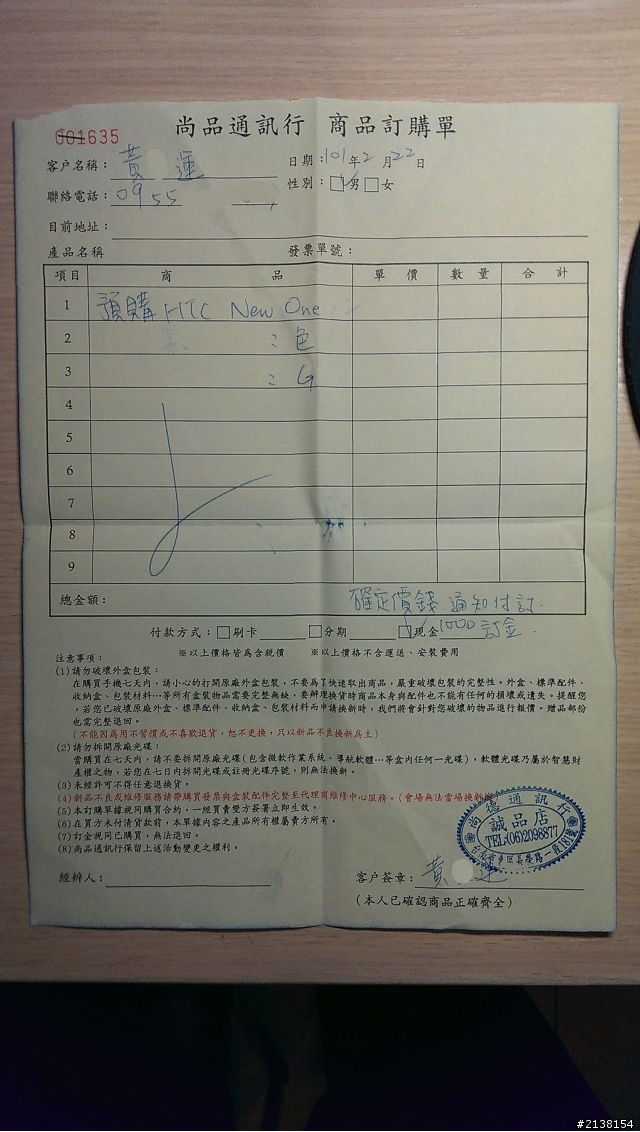 001635
尚品通訊行 商品訂購單
客户名稱： 黃 運
日期：101年2月22日
聯絡電話：0955
性別：□男□女
目前地址：
產品名稱 發票單號：
項目 商 品 單 價 數 量 合 計
1 預購 HTC New One
2 : 色
3 : G
4
5
6
7
8
9
總金額： 確定價錢 通知付訂.
付款方式：□刷卡 □分期 □現金 1000訂金.
※以上價格皆為含稅價 ※以上價格不含運送、安裝費用
注意事項：
(1)請勿破壞外盒包裝：
在購買手機七天內，請小心的打開原廠外盒包裝，不要為了快速取出商品，嚴重破壞包裝的完整性。外盒、標準配件、
收納盒、包裝材料…等所有盒裝物品需要完整無缺，要辦理換貨時商品本身與配件也不能有任何的損壞或遺失。提醒您
，若您已破壞原廠外盒、標準配件、收納盒、包裝材料而申請換新時，我們將會針對您破壞的物品進行報價。贈品部份
也需完整退回。
(不能因為用不習慣或不喜歡退貨，恕不更換，只以新品不良換新為主)
(2)請勿拆開原廠光碟：
當購買在七天內，請不要拆開原廠光碟(包含微軟作業系統、導航軟體…等盒內任何一光碟)，軟體光碟乃屬於智慧財
產權之物，若您在七日內拆開光碟或註冊光碟序號，則無法換新。
(3)未經許可不得任意退換貨。
(4)新品不良或維修服務請帶購買發票與盒裝配件完整至代理商維修中心服務。(會場無法當場換新機
(5)本訂購單據視同購買合約，一經買賣雙方簽署立即生效。
(6)在買方未付清貸款前，本單據內容之產品所有權屬賣方所有。
(7)訂金視同已購買，無法退回。
(8)尚品通訊行保留上述活動變更之權利。
尚品通訊行
誠品店
TEL:(06)2098877
經辦人：
客户簽章： 黃 運
(本人已確認商品正確齊全)
#2138154